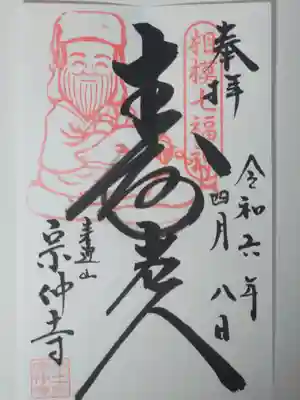 奉拝
相模七福神
令和六年
四月八日
寿老人
宗仲寺